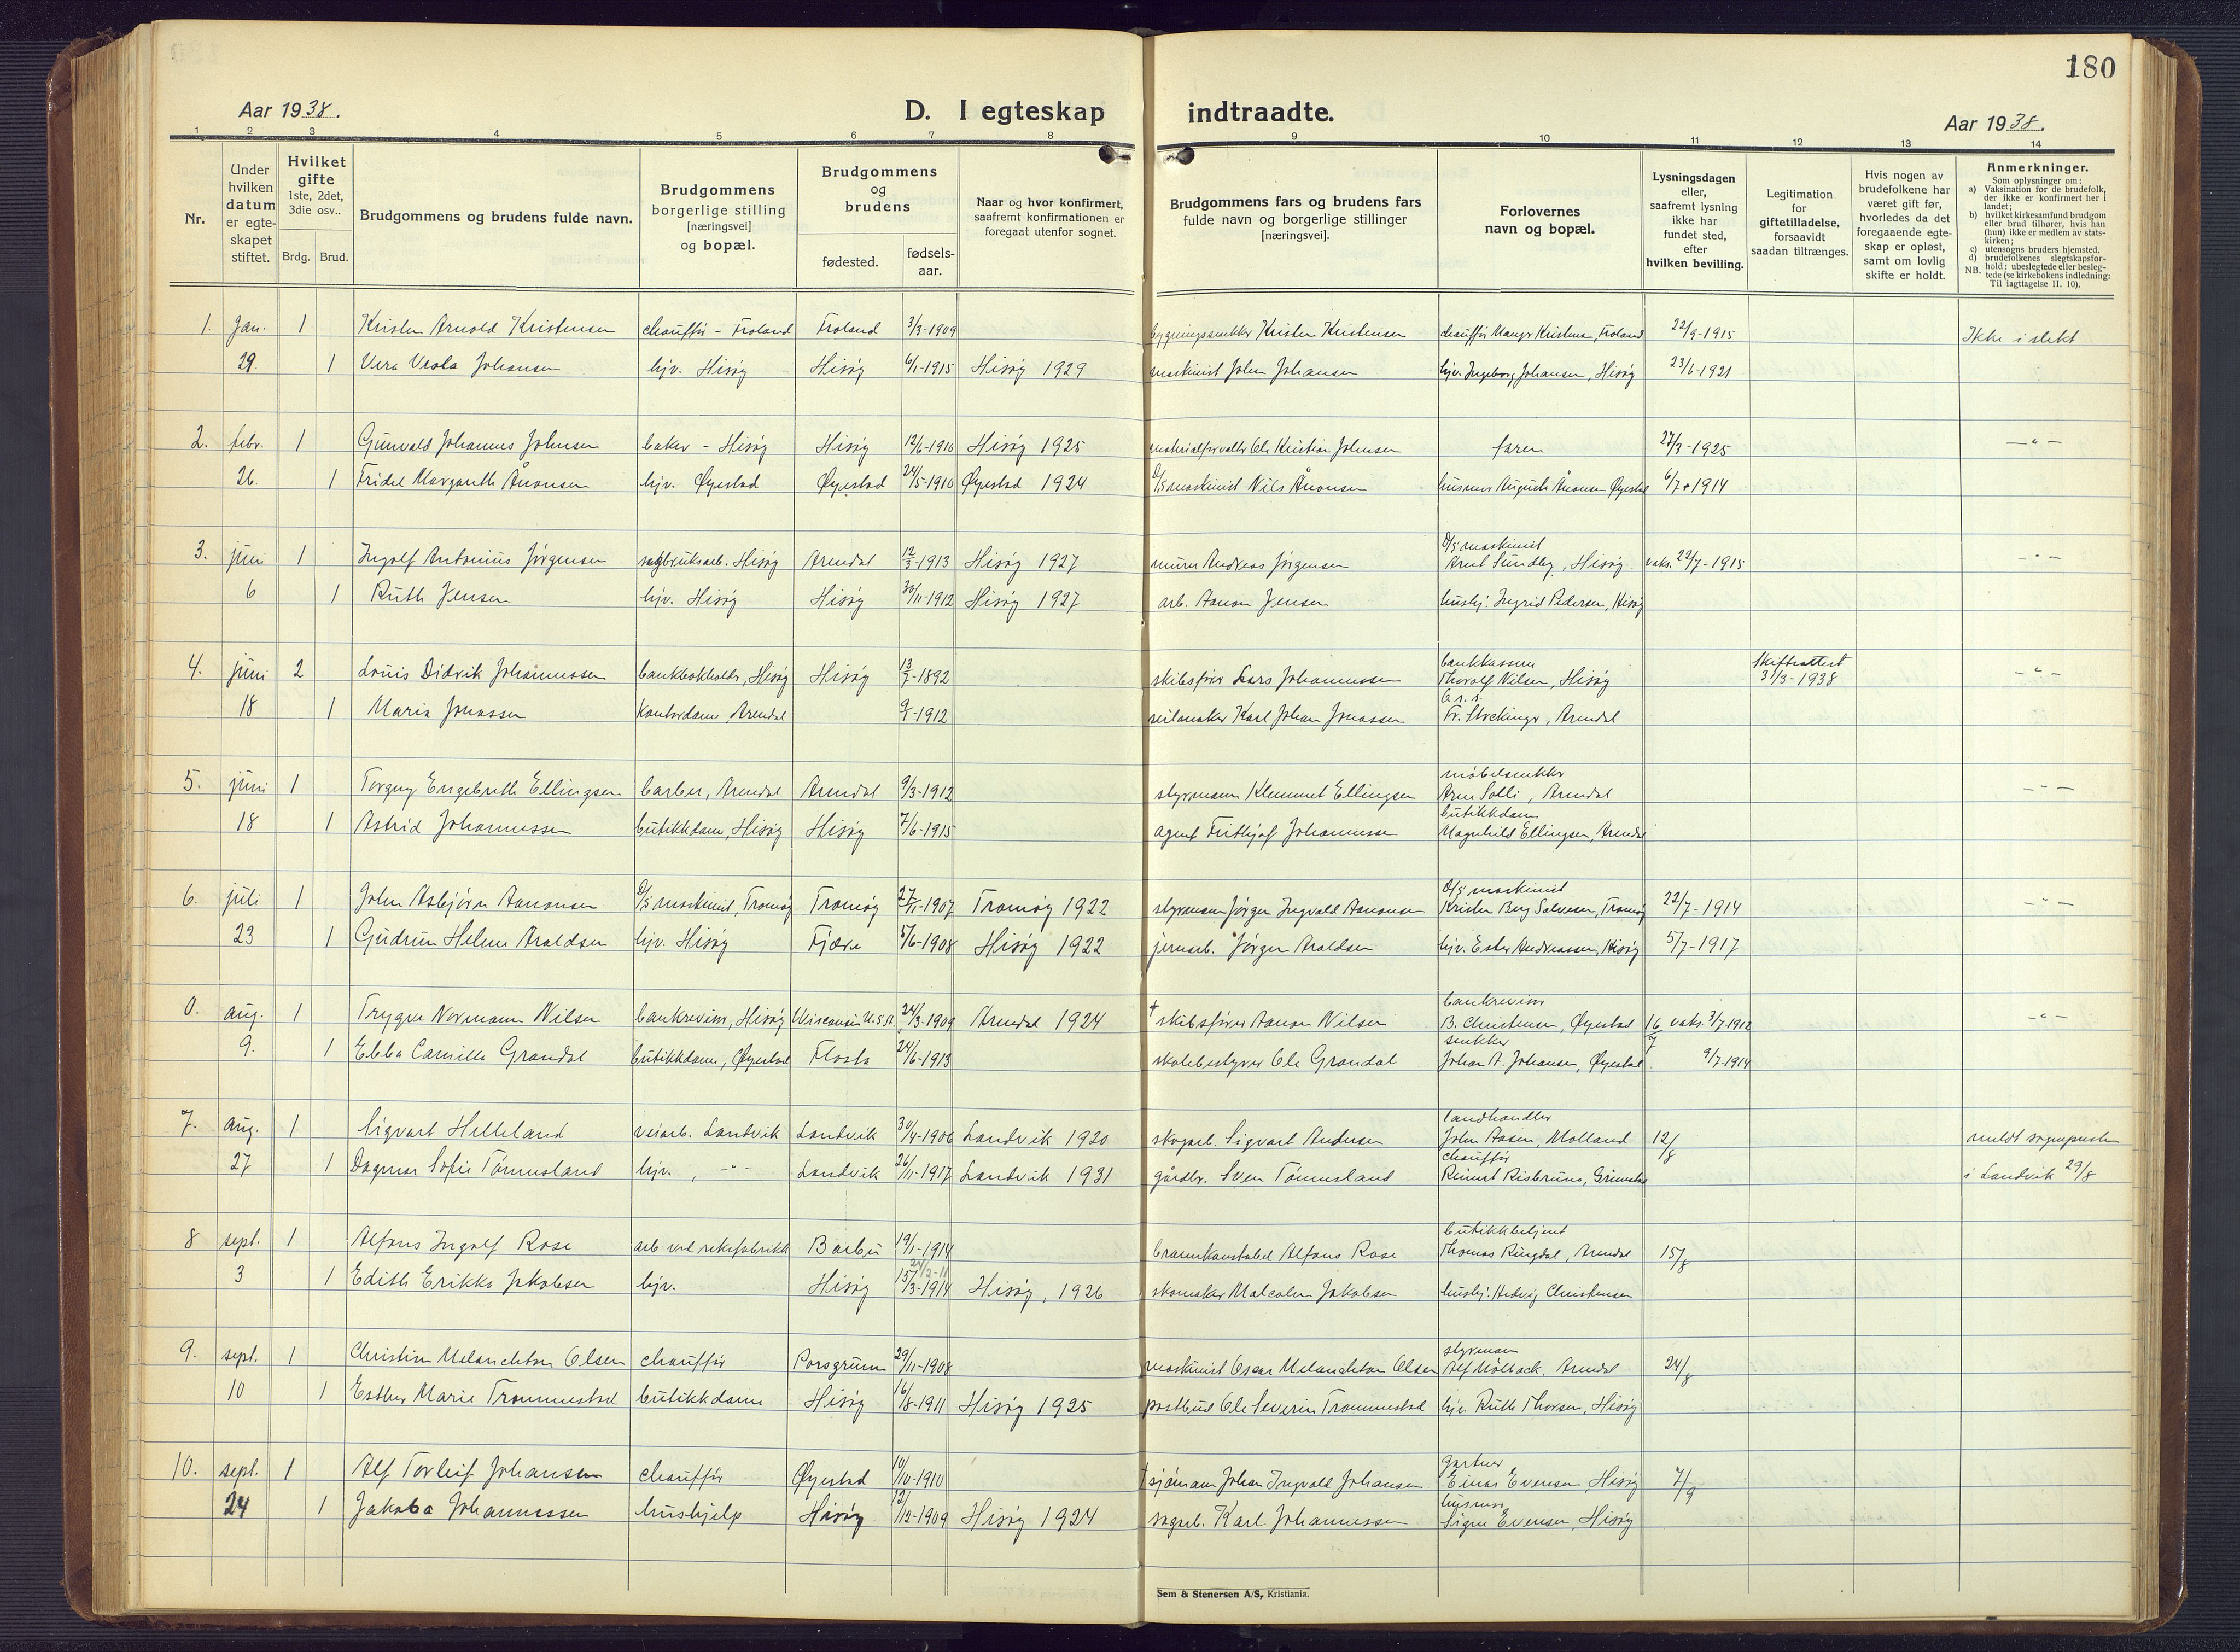 180
Aar 1938.
D. I egteskap indtraadte.
Aar 1938.
1 2 3 4 5 6 7 8 9 10 11 12 13 14
Nr.
Under hvilken datum er egteskapet stiftet.
Hvilket gifte 1ste, 2det, 3die osv..
Brdg. Brud.
Brudgommens og brudens fulde navn.
Brudgommens borgerlige stilling [næringsvei] og bopæl.
Brudgommens og brudens
fødested.
fødselsaar.
Naar og hvor konfirmert, saafremt konfirmationen er foregaat utenfor sognet.
Brudgommens fars og brudens fars fulde navn og borgerlige stillinger [næringsvei].
Forlovernes navn og bopæl.
Lysningsdagen eller, saafremt lysning ikke har fundet sted, efter hvilken bevilling.
Legitimation for giftetilladelse, forsaavidt saadan tiltrænges.
Hvis nogen av brudefolkene har været gift før, hvorledes da det foregaaende egteskap er opløst, samt om lovlig skifte er holdt.
Anmerkninger.
Som oplysninger om:
a) Vaksination for de brudefolk, der ikke er konfirmert her i landet;
b) hvilket kirkesamfund brudgom eller brud tilhører, hvis han (hun) ikke er medlem av statskirken;
c) utensogns bruders hjemsted.
d) brudefolkenes slegtskapsforhold: ubeslegtede eller beslegtede (se kirkebokens indledning: Til iagttagelse II. 10).
NB.
1. Jan. 1 Kristen Arnold Kristensen chauffør - Froland Froland 3/3-1909 bygningssnekker Kristen Kristensen chauffør Kristensen, Froland 22/9-1915 Ikke i slekt
29. 1 Vera Viola Johansen hjv. Hisøy Hisøy 6/1-1915 Hisøy 1929 maskinist John Johansen hjv. Ingeborg Johansen, Hisøy 23/6-1921
2. febr. 1 Gunvald Johannes Johnsen baker - Hisøy Hisøy 12/6-1910 Hisøy 1925 materialforvalter Ole Kristian Johnsen faren 27/3-1925 -"-
26. 1 Fridel Margareth Ånonsen hjv. Øyestad Øyestad 24/5-1910 Øyestad 1924 D/S maskinist Nils Ånonsen husmor Augusta Ånonsen Øyestad 6/7 1914
3. juni 1 Ingolf Antonius Jørgensen sagbruksarb. Hisøy Arendal 12/3-1913 Hisøy 1927 murer Andreas Jørgensen D/S maskinist Arnt Sundby, Hisøy vaks. 22/7-1915 -"-
6 1 Ruth Jensen hjv. Hisøy Hisøy 30/11-1912 Hisøy 1927 arb. Aanon Jensen hushj. Ingrid Pedersen, Hisøy
4. juni 2 Louis Didrik Johannessen bankbokholder, Hisøy Hisøy 13/7-1892 skibsfører Lars Johannessen bankkasserer Thorolf Nilsen, Hisøy Skifteattest 31/3-1938 -"-
18 1 Maria Jonassen kontordame, Arendal 9/1-1912 seilmaker Karl Johan Jonassen Fr. Stockinger, Arendal
5. juni 1 Torgny Engebreth Ellingsen barber, Arendal Arendal 9/3-1912 styrmann Klemmet Ellingsen møbelsnekker Arne Solli, Arendal -"-
18 1 Astrid Johannessen butikkdame, Hisøy Hisøy 7/6-1915 agent Frithjof Johannessen butikkdame Magnhild Ellingsen, Arendal
6. juli 1 John Asbjørn Aanonsen D/S maskinist, Tromøy Tromøy 27/11-1907 Tromøy 1922 styrmann Jørgen Ingvald Aanonsen D/S maskinist Krister Berg Salvesen, Tromøy 22/7-1914 -"-
23 1 Gudrun Helene Araldsen hjv. Hisøy Fjære 5/6-1908 Hisøy 1922 jernarb. Jørgen Araldsen hjv. Ester Andreassen, Hisøy 5/7-1917
0. aug. 1 Trygve Normann Nilsen bankrevisor, Hisøy Wisconsin U.S.A. 24/3-1909 Arendal 1924 † skibsfører Aanon Nilsen bankrevisor B. Christensen, Øyestad 16/7 vaks. 3/7-1912 -"-
9. 1 Ebba Camilla Grandal butikkdame, Øyestad Flosta 24/6-1913 skolebestyrer Ole Grandal snekker Johan A. Johansen, Øyestad 9/7-1914
7. aug. 1 Sigvart Helleland veiarb. Landvik Landvik 30/4-1906 Landvik 1920 skogarb. Sigvart Andersen landhandler John Aasen, Molland 12/8 meldt sognepresten
27 1 Dagmar Sofie Tønnesland hjv., -"- Landvik 26/11-1917 Landvik 1931 gårdbr. Sven Tønnesland chauffør Reinert Risbruna, Grimstad i Landvik 29/8
8 sept. 1 Alfons Ingolf Rose arb ved rekefabrikk Barbu 19/1-1914 brannkonstabel Alfons Rose butikkbetjent Thomas Ringdal, Arendal 15/8
3 1 Edith Erikka Jakobsen hjv. Hisøy 15/3-1914 Hisøy, 1926 skomaker Malcolm Jakobsen hushj. Hedvig Christensen
9. sept. 1 Christian Melanchton Olsen chauffør Porsgrunn 29/11-1908 maskinist Oscar Melanchton Olsen styrmann Alf Mölback, Arendal 24/8
10 1 Esther Marie Trommestad butikkdame Hisøy 16/8-1911 Hisøy 1925 postbud Ole Severin Trommestad hjv. Ruth Thorsen, Hisøy
10. sept. 1 Alf Torleif Johansen chauffør Øyestad 10/10-1910 † sjømann Johan Ingvald Johansen gartner Einar Evensen, Hisøy 7/9
24 1 Jakoba Johannessen hushjelp Hisøy 12/12-1909 Hisøy 1924 sagarb. Karl Johannessen husmor Signe Evensen, Hisøy
Sem & Stenersen A/S, Kristiania.